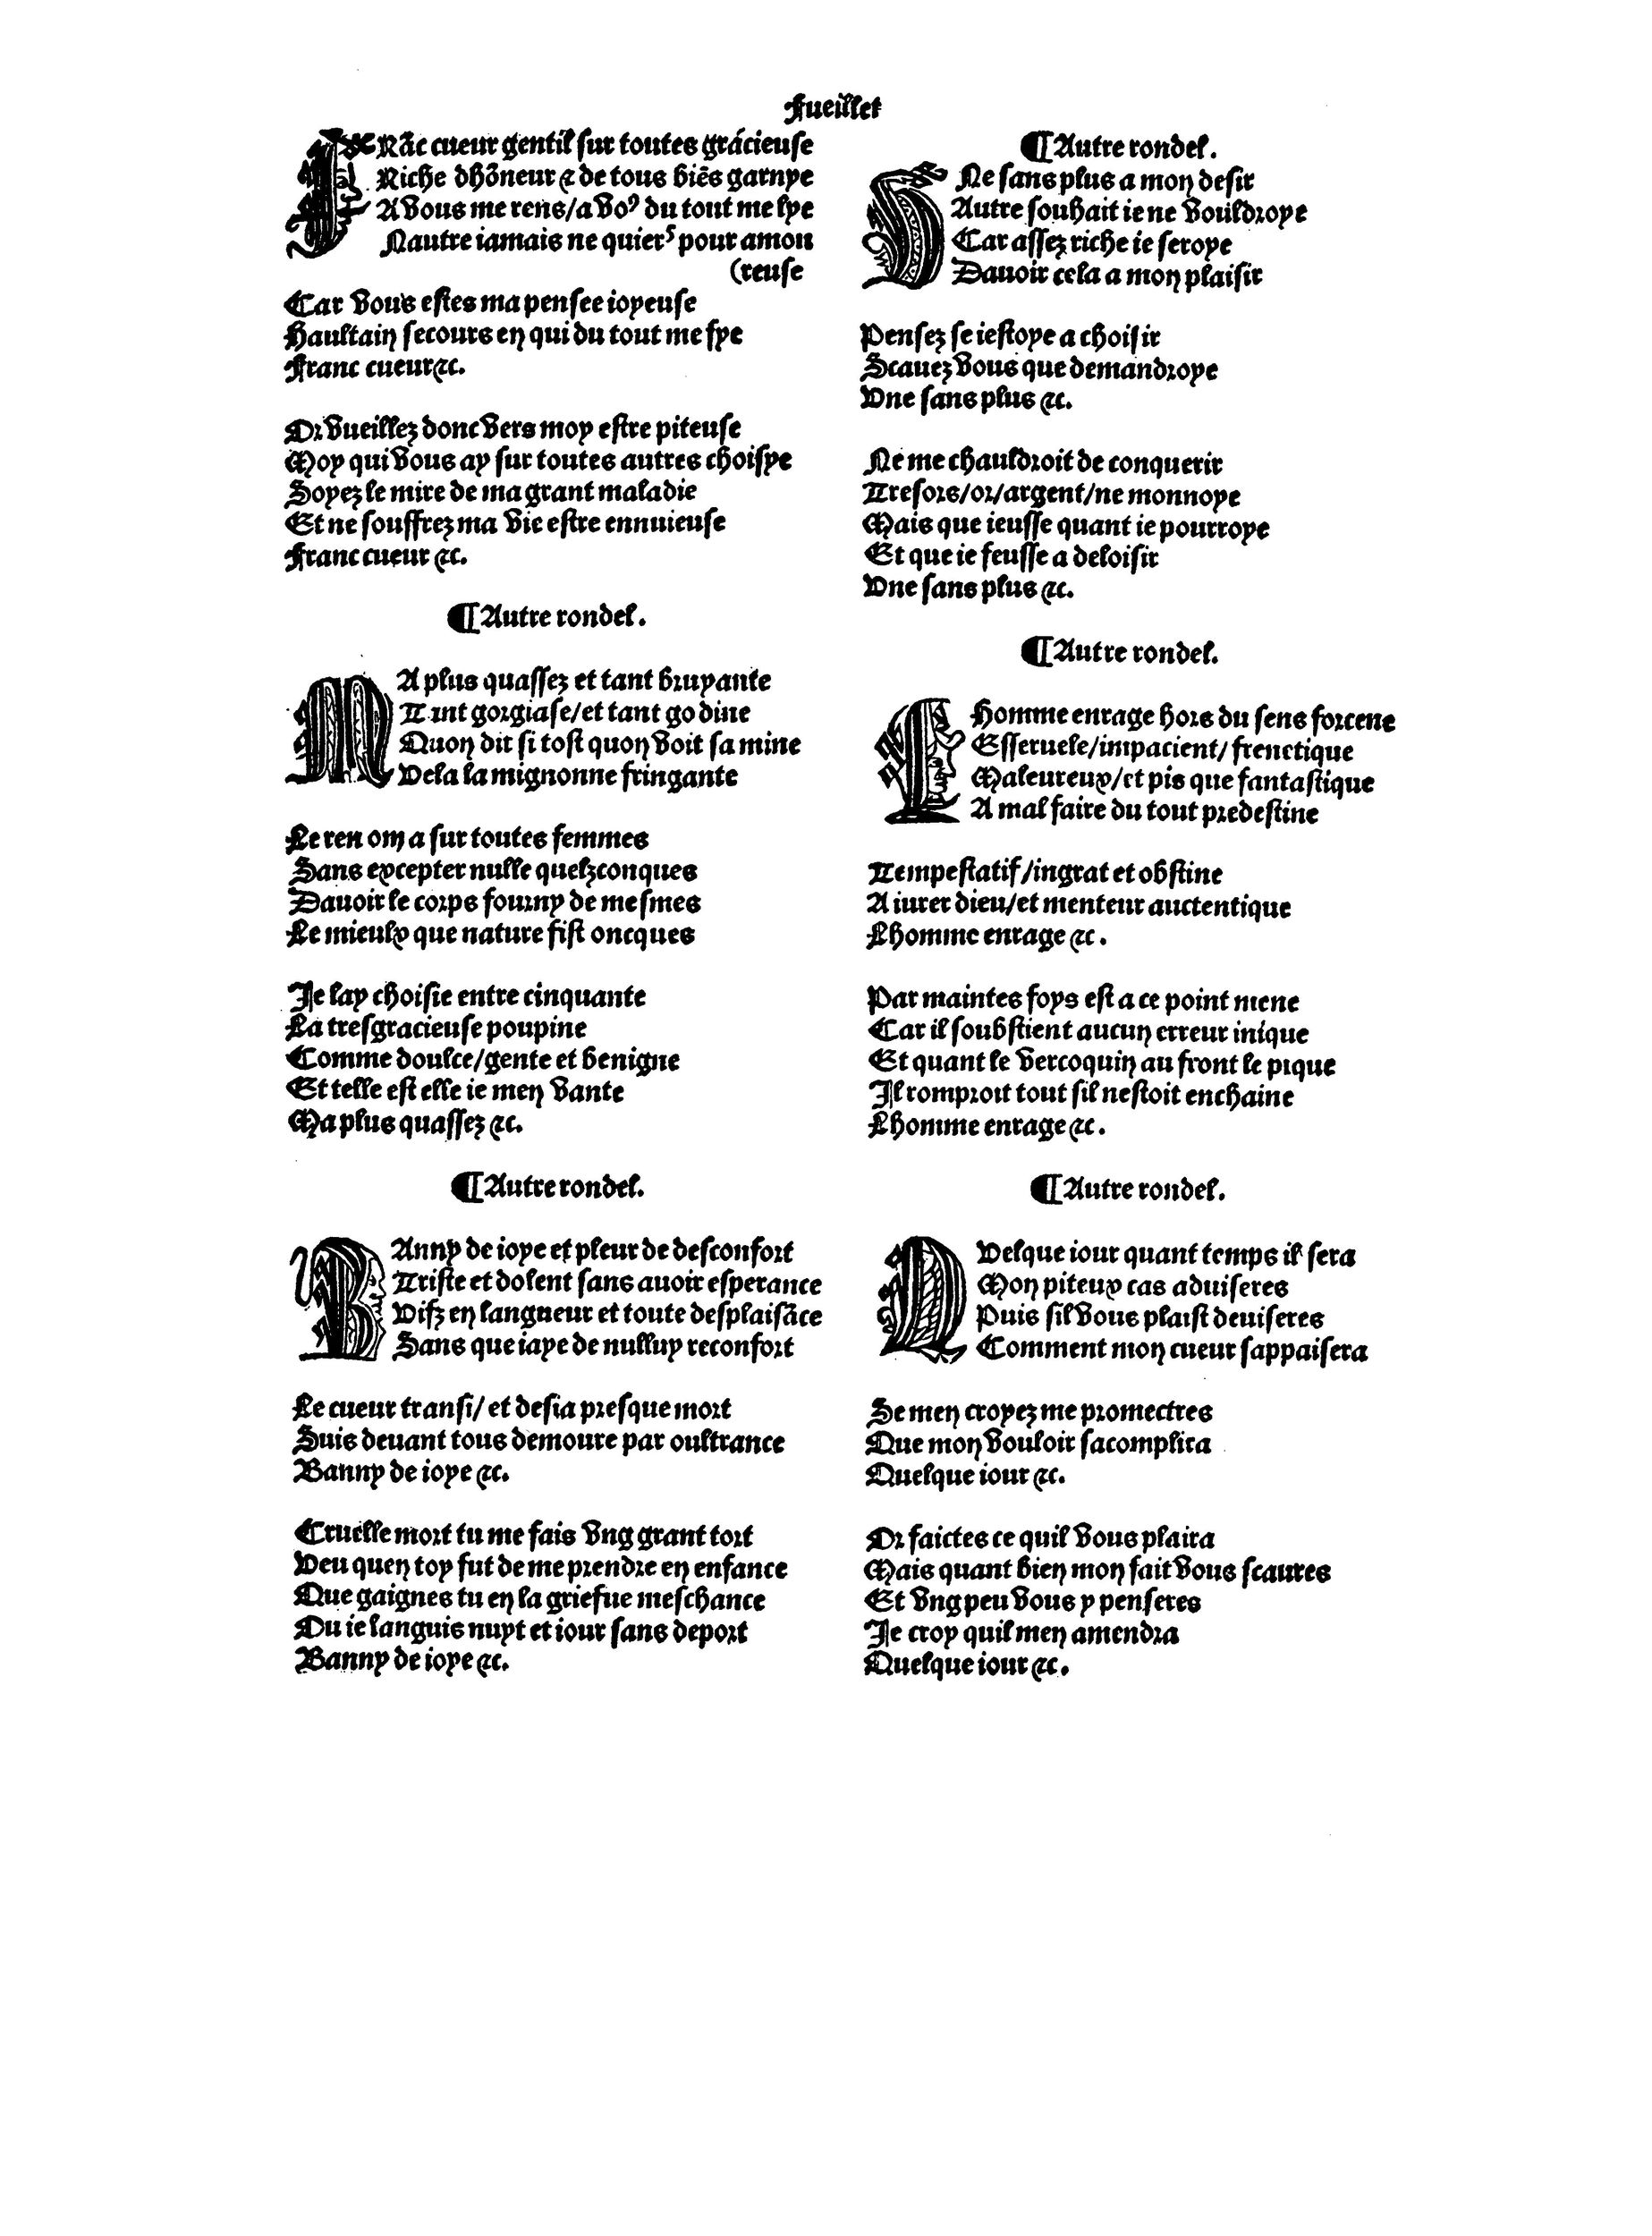 Fueillet
FRãc cueur gentil sur toutes gracieuse
Riche dhõneur & de tous biẽs garnye
A vous me rens/a voꝰ du tout me lye
Nautre iamais ne quier pour amou
(reuse
Car vous estes ma pensee ioyeuse
Haultain secours en qui du tout me fye
Franc cueur &c.
Or vueillez donc vers moy estre piteuse
Moy qui vous ay sur toutes autres choisye
Soyez le mire de ma grant maladie
Et ne souffrez ma vie estre ennuieuse
Franc cueur &c.
¶Autre rondel.
MA plus quassez et tant bruyante
Tant gorgiase/et tant godine
Quon dit si tost quon voit sa mine
Vela la mignonne fringante
Le renom a sur toutes femmes
Sans excepter nulle quelzconques
Dauoir le corps fourny de mesmes
Le mieulx que nature fist oncques
Je lay choisie entre cinquante
La tresgracieuse poupine
Comme doulce/gente et benigne
Et telle est elle ie men vante
Ma plus quassez &c.
¶Autre rondel.
BAnny de ioye et pleur de desconfort
Triste et dolent sans auoir esperance
Vifz en langueur et toute desplaisãce
Sans que iaye de nulluy reconfort
Le cueur transi/ et desia presque mort
Suis deuant tous demoure par oultrance
Banny de ioye &c.
Cruelle mort tu me fais vng grant tort
Veu quen toy fut de me prendre en enfance
Que gaignes tu en la griefue meschance
Ou ie languis nuyt et iour sans deport
Banny de ioye &c.
¶Autre rondel.
VNe sans plus a mon desir
Autre souhait ie ne vouldroye
Car assez riche ie seroye
Dauoir cela a mon plaisir
Pensez se iestoye a choisir
Scauez vous que demandroye
Vne sans plus &c.
Ne me chauldroit de conquerir
Tresors/or/argent/ne monnoye
Mais que ieusse quant ie pourroye
Et que ie feusse a deloisir
Vne sans plus &c.
¶Autre rondel.
LHomme enrage hors du sens forcene
Esseruele/impacient/ frenetique
Maleureux/et pis que fantastique
A mal faire du tout predestine
Tempestatif/ingrat et obstine
A iurer dieu/et menteur auctentique
Lhomme enrage &c.
Par maintes foys est a ce point mene
Car il soubstient aucun erreur inique
Et quant le vercoquin au front le pique
Il romproit tout sil nestoit enchaine
Lhomme enrage &c.
¶Autre rondel.
QVelque iour quant temps il sera
Mon piteux cas aduiseres
Puis sil vous plaist deuiseres
Comment mon cueur sappaisera
Se men croyez me promectres
Que mon vouloir sacomplira
Quelque iour &c.
Or faictes ce quil vous plaira
Mais quant bien mon fait vous scaures
Et vng peu vous y penseres
Je croy quil men amendra
Quelque iour &c.